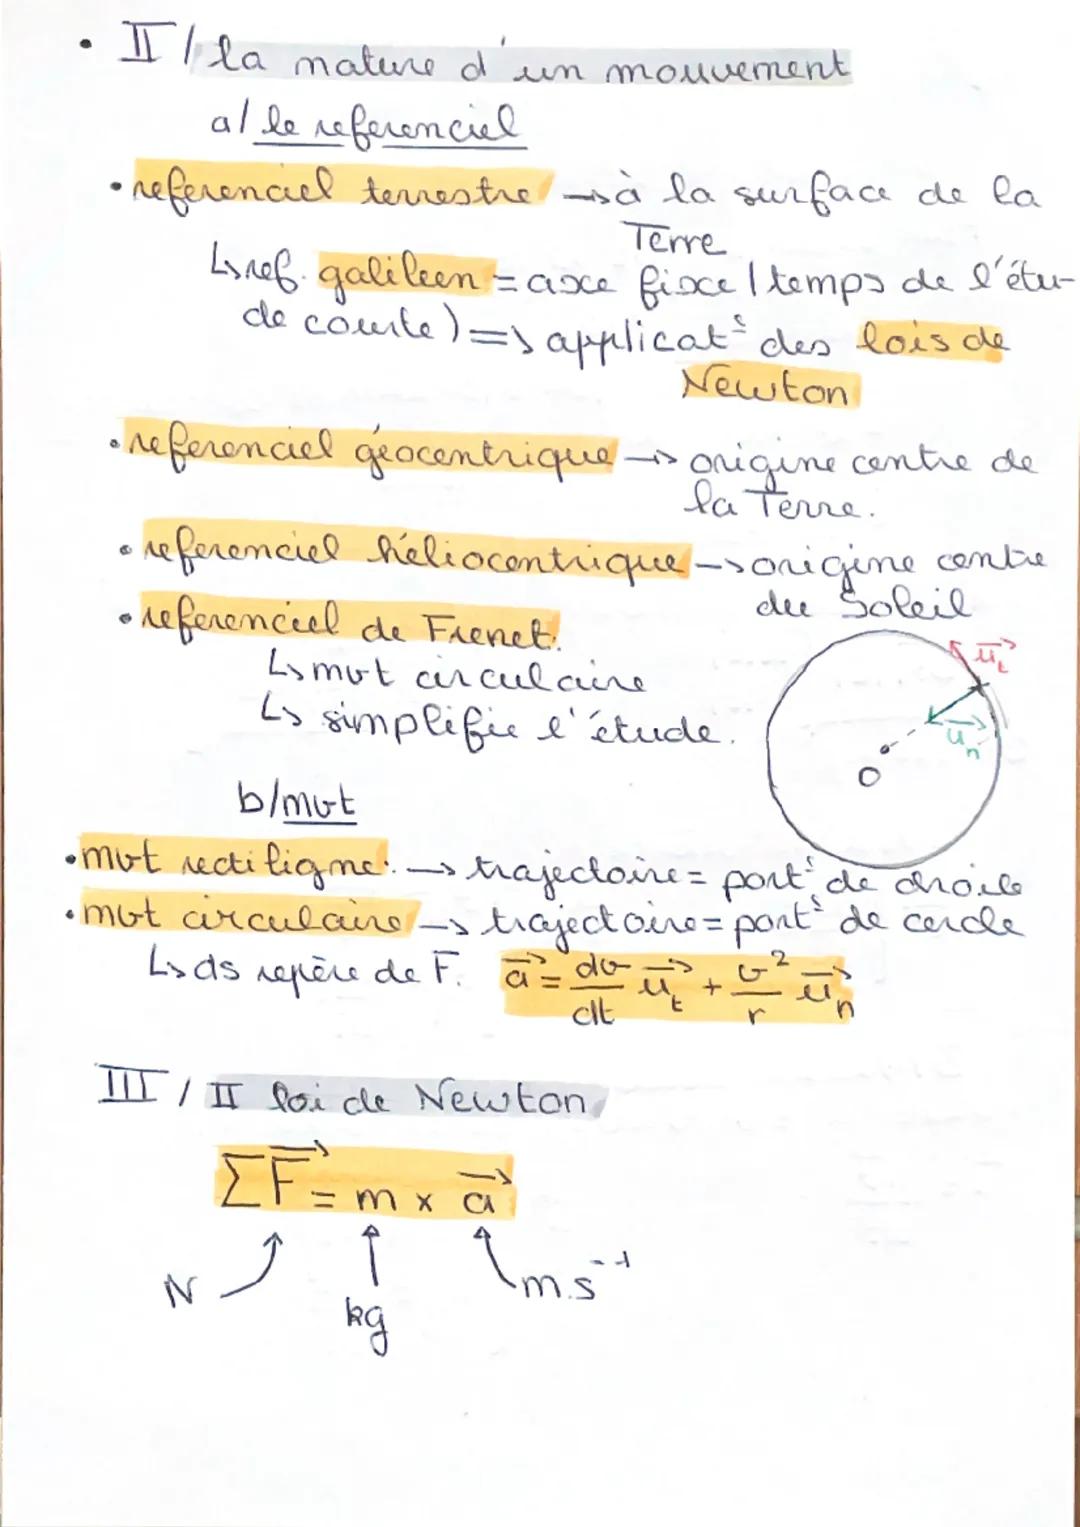 • II / la nature d'un mouvement
a/ le referenciel
• referenciel terrestre → à la surface de la
Terre
↳ ref. galileen = axe fixe / temps de l'étu-
de courte) => applicat° des lois de
Newton
• referenciel géocentrique → origine centre de
la Terre.
• referenciel héliocentrique → origine centre
du Soleil
• referenciel de Frenet.
↳ mvt circulaire
↳ simplifie l'étude.
u⃗t
u⃗n
O
b/ mvt
• mvt rectiligne. → trajectoire = port° de droite
• mvt circulaire → trajectoire = port° de cercle
↳ ds repère de F. a⃗ = dv/dt u⃗t + v²/r u⃗n
III / II loi de Newton
∑F⃗ = m x a⃗
N kg m.s⁻¹